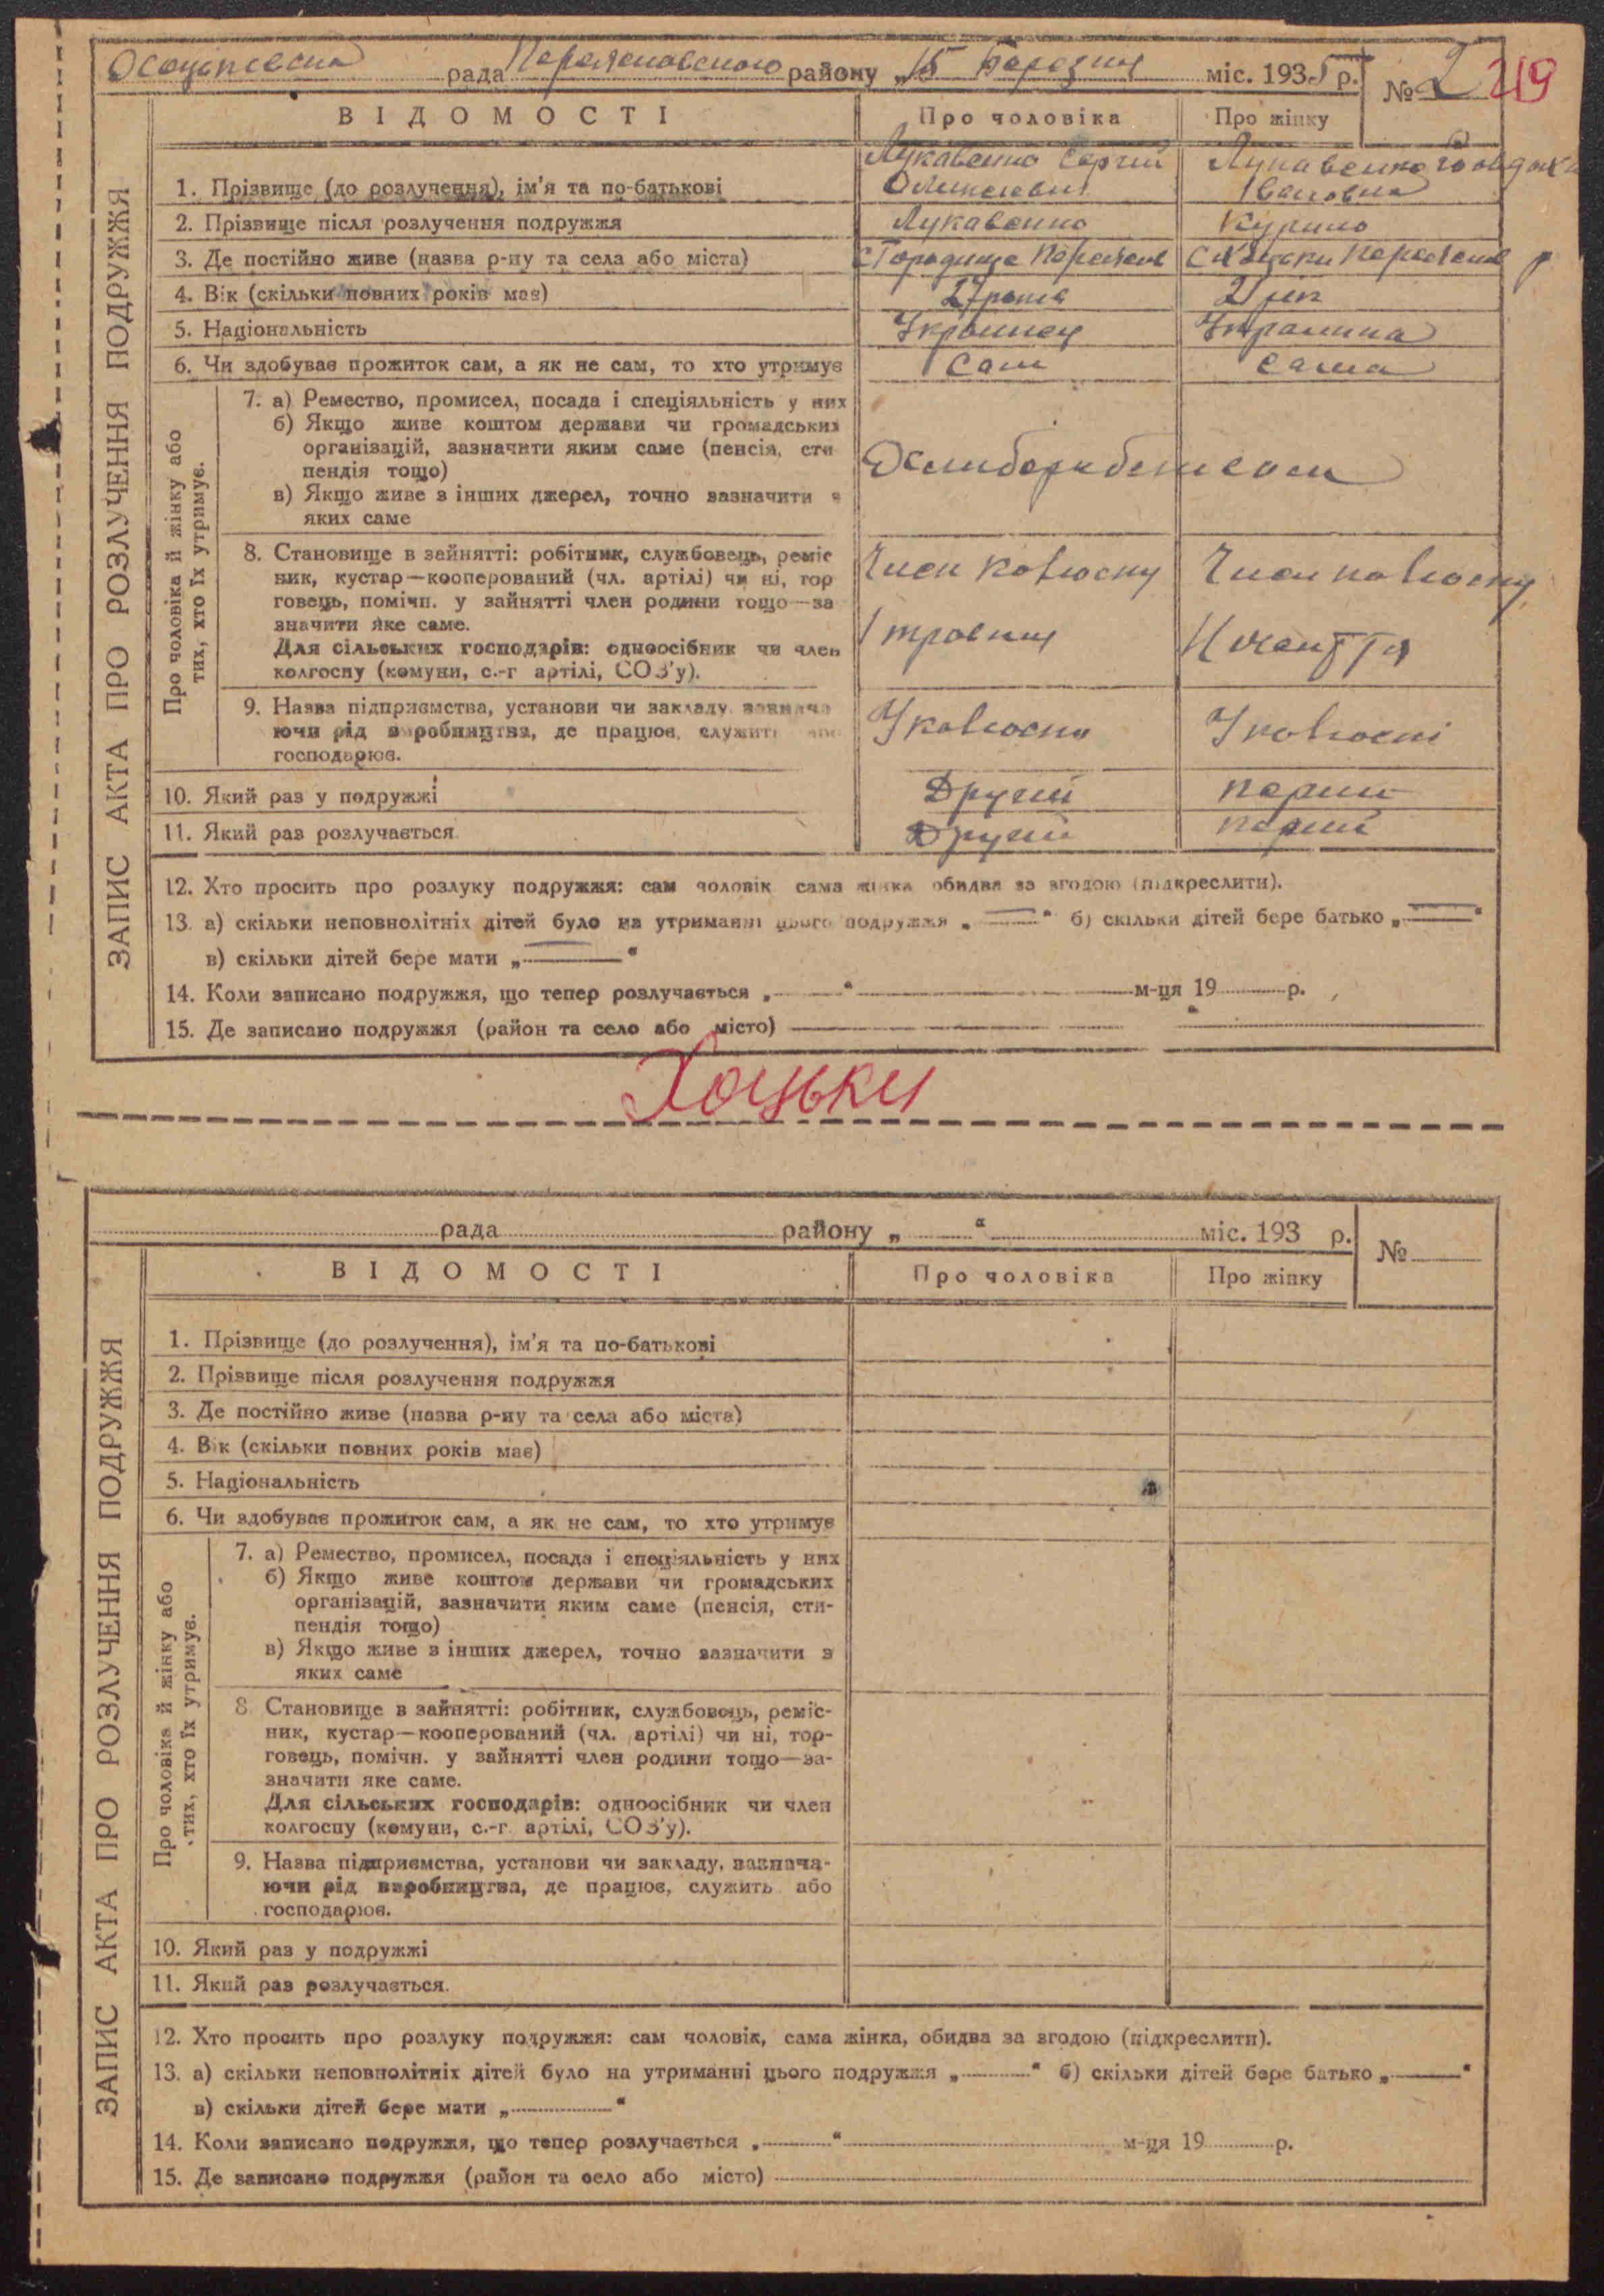 рада Переяславського району „15 Березня міс. 1935 р. № 2 219
ВІДОМОСТІ Про чоловіка Про жінку
ЗАПИС АКТА ПРО РОЗЛУЧЕННЯ ПОДРУЖЖЯ
Лукавенко Сергій Лукавенко
1. Прізвище (до розлучення), ім'я та по-батькові Івановна
2. Прізвище після розлучення подружжя Лукавенко Курило
3. Де постійно живе (назва р-ну та села або міста) с Городище Переяслв с Хоцьки Переяслв р
4. Вік (скільки повних років має) 27 років 21 рік
5. Національність Українец Українка
6. Чи здобуває прожиток сам, а як не сам, то хто утримує Сам сама
Про чоловіка й жінку або
тих, хто їх утримує.
7. а) Ремество, промисел, посада і спеціяльність у них
б) Якщо живе коштом держави чи громадських
організацій, зазначити яким саме (пенсія, сти
пендія тощо)
в) Якщо живе з інших джерел, точно зазначити з
яких саме
8. Становище в зайнятті: робітник, службовець, реміс
ник, кустар—кооперований (чл. артілі) чи ні, тор
говець, помічн. у зайнятті член родини тощо—за
значити яке саме.
Для сільських господарів: одноосібник чи член
колгоспу (комуни, с.-г артілі, СОЗ'у).
Член колгоспу Член колгоспу
9. Назва підприємства, установи чи закладу, зазнача
ючи рід виробництва, де працює, служить або
господарює.
У колгоспи У колгоспі
10. Який раз у подружжі Другий перший
11. Який раз розлучається Другий перший
12. Хто просить про розлуку подружжя: сам чоловік сама жінка обидва за згодою (підкреслити).
13. а) скільки неповнолітніх дітей було на утриманні цього подружжя „—“ б) скільки дітей бере батько „—“
в) скільки дітей бере мати „—“
14. Коли записано подружжя, що тепер розлучається „ “ м-ця 19 р.
15. Де записано подружжя (район та село або місто)
Хоцьки
рада району „ “ міс. 193 р. №
ВІДОМОСТІ Про чоловіка Про жінку
ЗАПИС АКТА ПРО РОЗЛУЧЕННЯ ПОДРУЖЖЯ
1. Прізвище (до розлучення), ім'я та по-батькові
2. Прізвище після розлучення подружжя
3. Де постійно живе (назва р-ну та села або міста)
4. Вік (скільки повних років має)
5. Національність
6. Чи здобуває прожиток сам, а як не сам, то хто утримує
Про чоловіка й жінку або
тих, хто їх утримує.
7. а) Ремество, промисел, посада і спеціяльність у них
б) Якщо живе коштом держави чи громадських
організацій, зазначити яким саме (пенсія, сти-
пендія тощо)
в) Якщо живе з інших джерел, точно зазначити з
яких саме
8 Становище в зайнятті: робітник, службовець, реміс-
ник, кустар—кооперований (чл. артілі) чи ні, тор-
говець, помічн. у зайнятті член родини тощо—за-
значити яке саме.
Для сільських господарів: одноосібник чи член
колгоспу (комуни, с.-г. артілі, СОЗ'у).
9. Назва підприємства, установи чи закладу, зазнача-
ючи рід виробництва, де працює, служить або
господарює.
10. Який раз у подружжі
11. Який раз розлучається.
12. Хто просить про розлуку подружжя: сам чоловік, сама жінка, обидва за згодою (підкреслити).
13. а) скільки неповнолітніх дітей було на утриманні цього подружжя „ “ б) скільки дітей бере батько „ “
в) скільки дітей бере мати „ “
14. Коли записано подружжя, що тепер розлучається „ “ м-ця 19 р.
15. Де записано подружжя (район та село або місто)